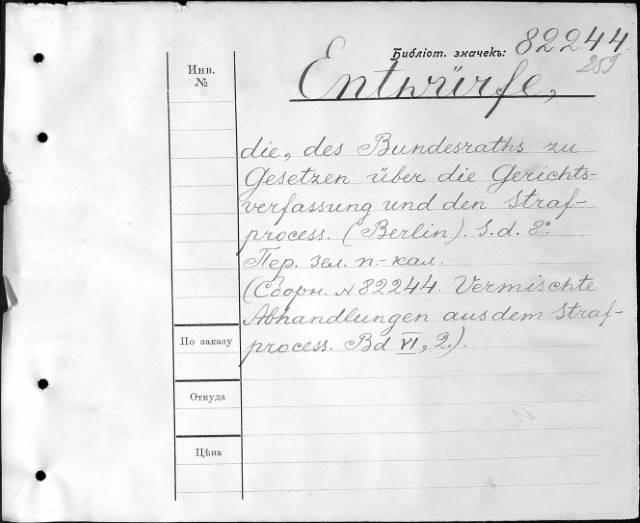 Библіот. значекъ: 82244
259
Инв.
№
Entwürfe,
die, des Bundesraths zu
Gesetzen über die Gerichts-
verfassung und den Straf-
process. (Berlin). S.d. 8°.
Пер. зел. п.-кал.
(Сборн. № 82244. Vermischte
Abhandlungen aus dem Straf-
process. Bd VI, 2.).
По заказу
Откуда
Цѣна